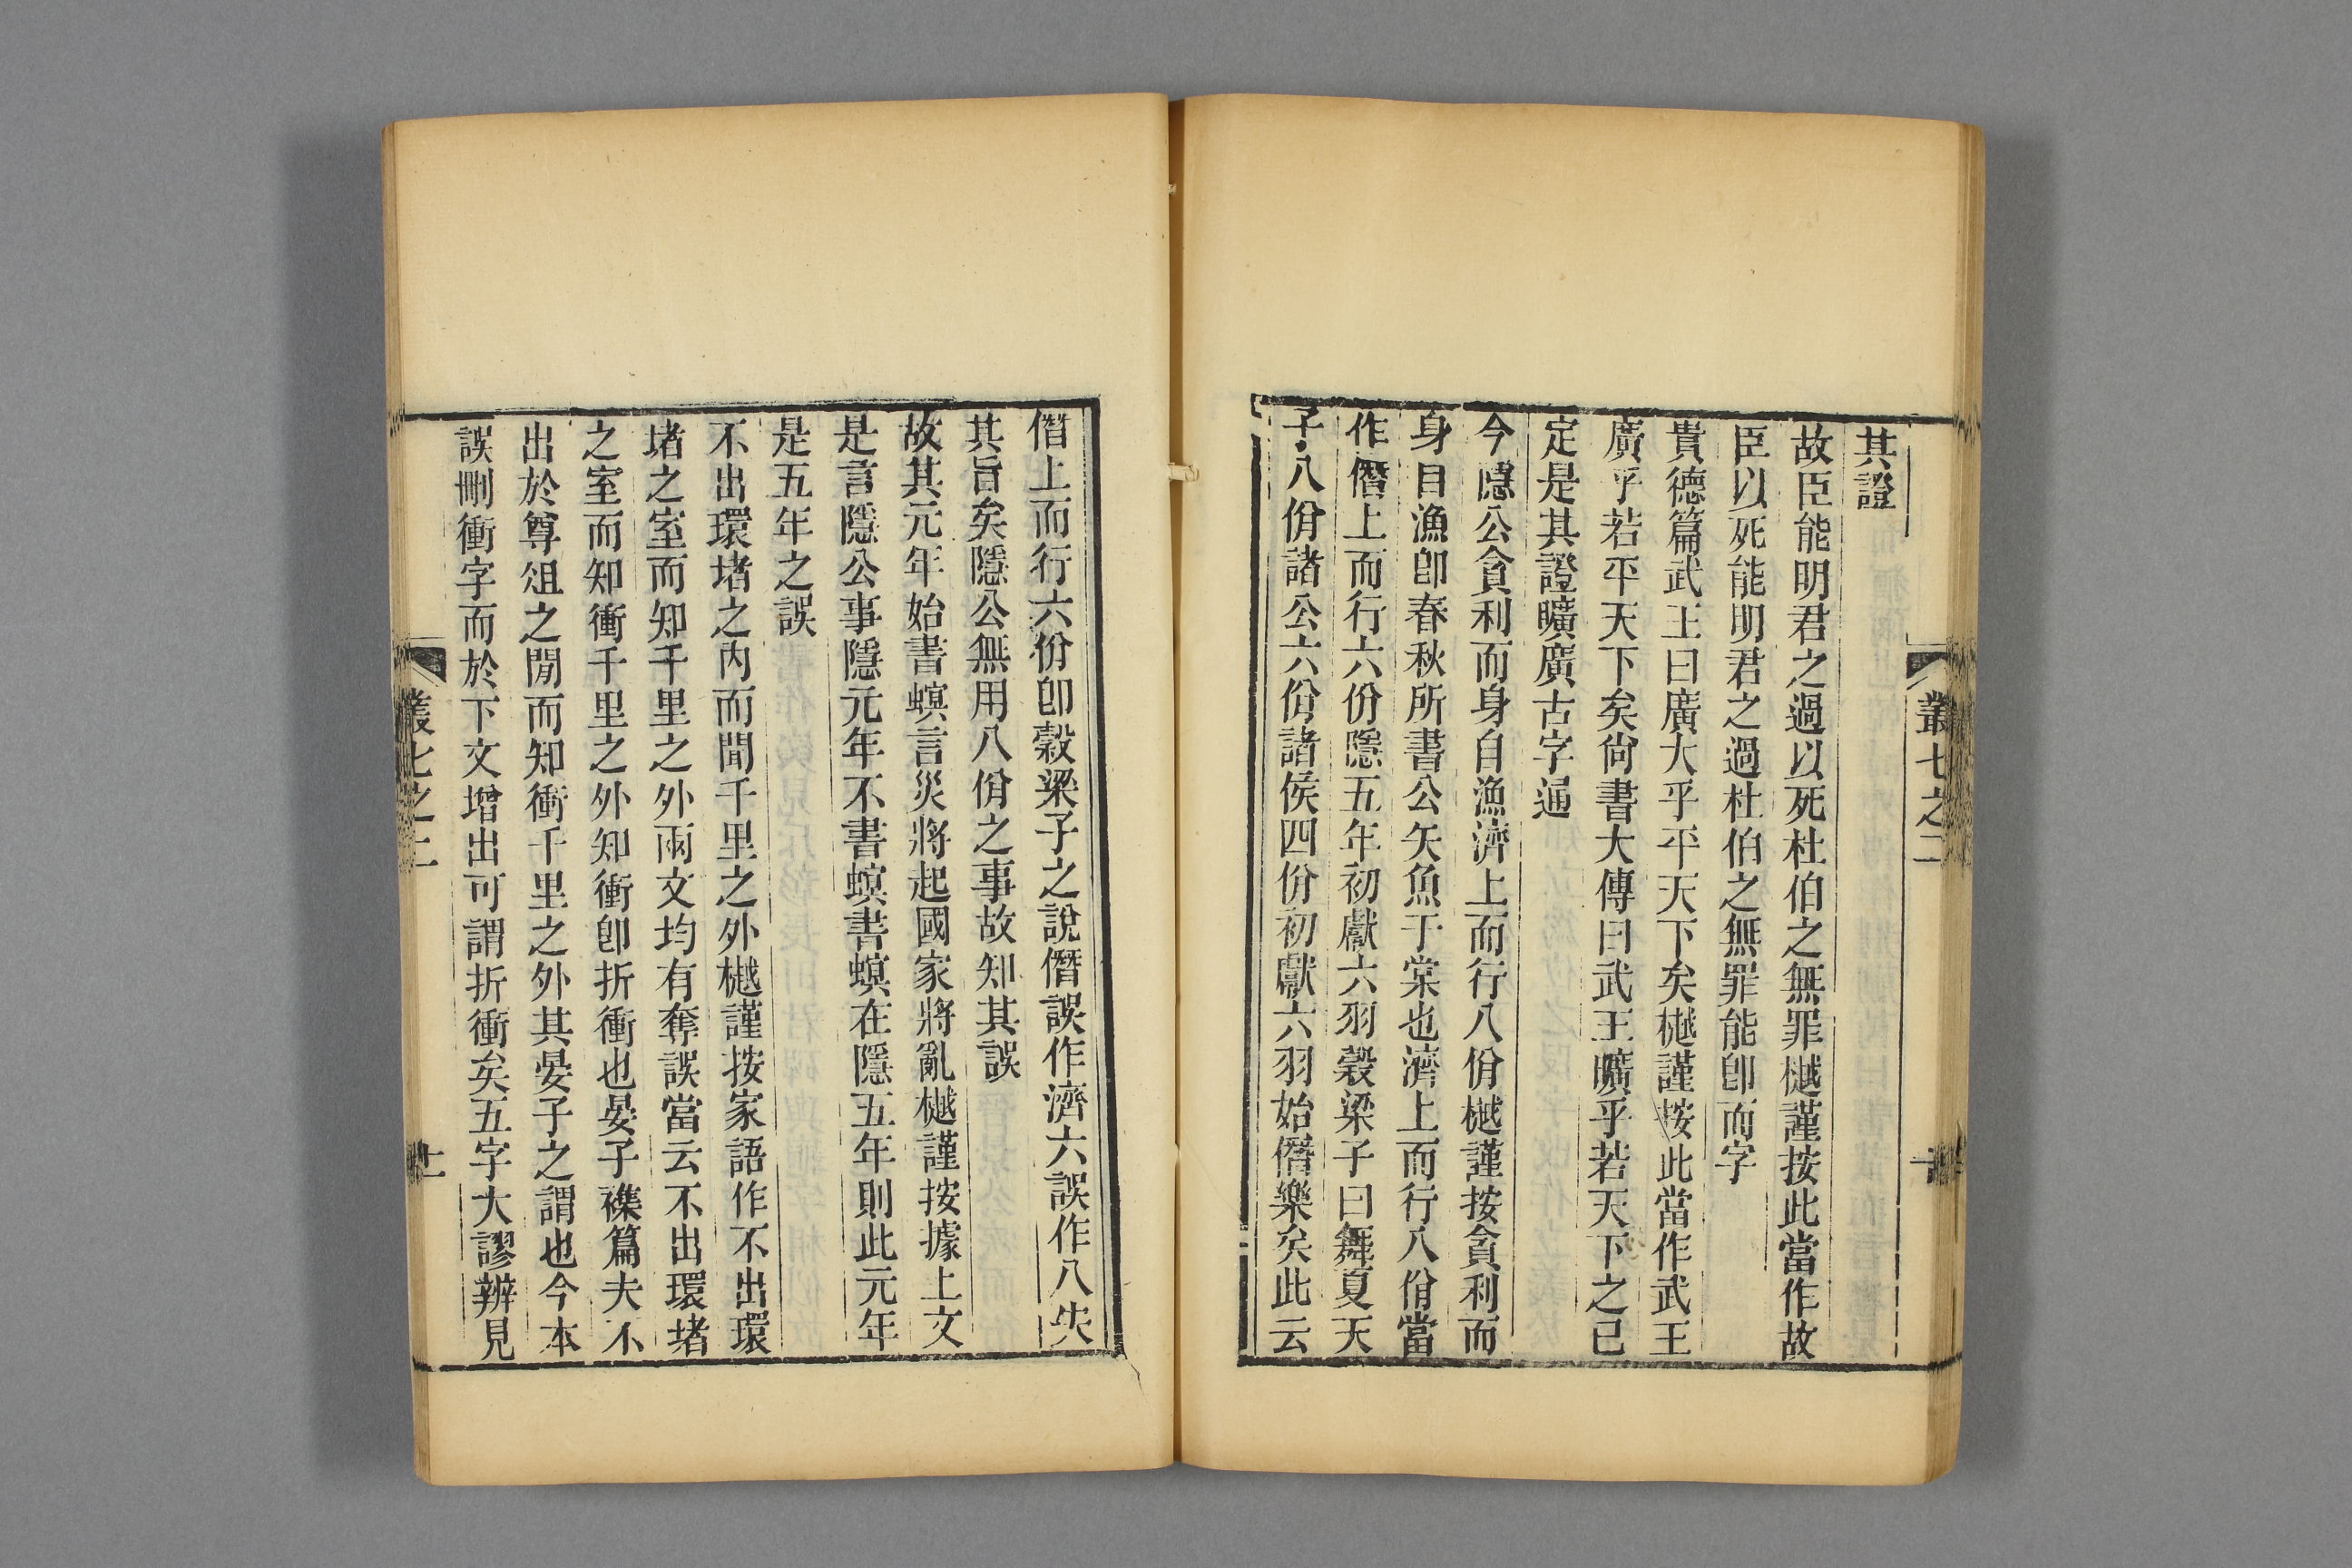 叢七之二
其證
故臣能明君之過以死杜伯之無罪樾謹按此當作故
臣以死能明君之過杜伯之無罪能卽而字
貴德篇武王曰廣大乎平天下矣樾謹按此當作武王
廣乎若平天下矣尙書大傳曰武王曠乎若天下之已
定是其證曠廣古字通
今隱公貪利而身自漁濟上而行八佾樾謹按貪利而
身自漁卽春秋所書公矢魚于棠也濟上而行八佾當
作僭上而行六佾隱五年初獻六羽穀梁子曰舞夏天
子八佾諸公六佾諸侯四佾初獻六羽始僭樂矣此云
僭上而行六佾卽穀梁子之說僭誤作濟六誤作八失
其旨矣隱公無用八佾之事故知其誤
故其元年始書螟言災將起國家將亂樾謹按據上文
是言隱公事隱元年不書螟書螟在隱五年則此元年
是五年之誤
不出環堵之內而聞千里之外樾謹按家語作不出環
堵之室而知千里之外兩文均有奪誤當云不出環堵
之室而知衝千里之外知衝卽折衝也晏子襍篇夫不
出於尊俎之閒而知衝千里之外其晏子之謂也今本
誤刪衝字而於下文增出可謂折衝矣五字大謬辨見
叢七之二